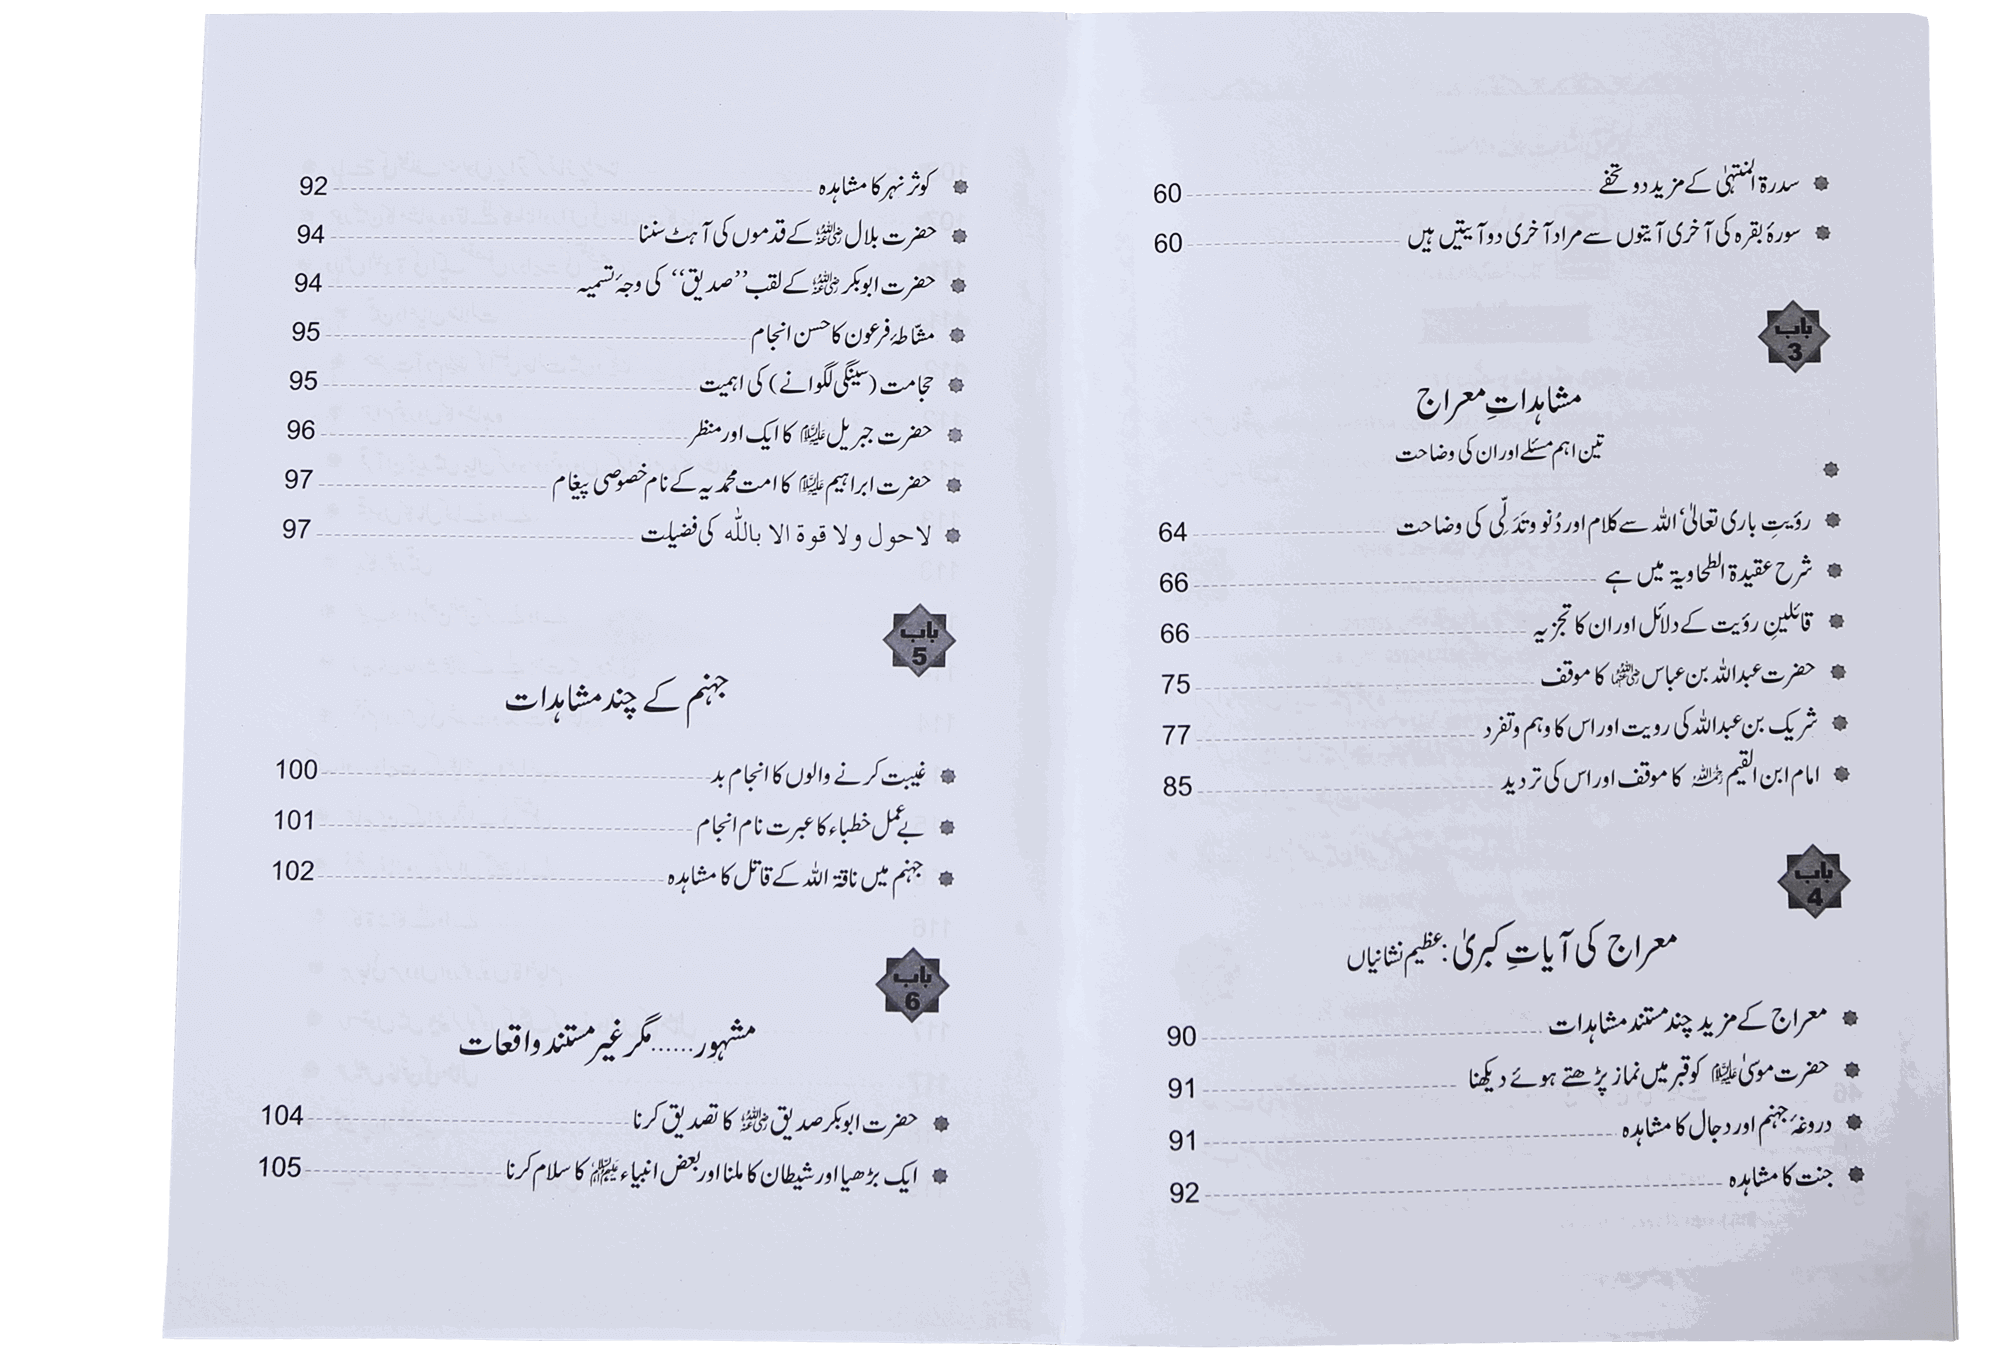 سدرۃ المنتہیٰ کے مزید دو تحفے 60
سورۂ بقرہ کی آخری آیتوں سے مراد آخری دو آیتیں ہیں 60
باب 3
مشاہداتِ معراج
تین اہم مسئلے اور ان کی وضاحت
رؤیتِ باری تعالیٰ، اللہ سے کلام اور دُنو وتَدَلّی کی وضاحت 64
شرح عقیدۃ الطحاویۃ میں ہے 66
قائلینِ رؤیت کے دلائل اور ان کا تجزیہ 66
حضرت عبداللہ بن عباس رضی اللہ عنہما کا موقف 75
شریک بن عبداللہ کی رویت اور اس کا وہم وتفرد 77
امام ابن القیم رحمہ اللہ کا موقف اور اس کی تردید 85
باب 4
معراج کی آیاتِ کبریٰ: عظیم نشانیاں
معراج کے مزید چند مستند مشاہدات 90
حضرت موسیٰ علیہ السلام کو قبر میں نماز پڑھتے ہوئے دیکھنا 91
دروغۂ جہنم اور دجال کا مشاہدہ 91
جنت کا مشاہدہ 92
کوثر نہر کا مشاہدہ 92
حضرت بلال رضی اللہ عنہ کے قدموں کی آہٹ سننا 94
حضرت ابوبکر رضی اللہ عنہ کے لقب ”صدیق“ کی وجہ تسمیہ 94
مشّاطۂ فرعون کا حسن انجام 95
حجامت (سینگی لگوانے) کی اہمیت 95
حضرت جبریل علیہ السلام کا ایک اور منظر 96
حضرت ابراہیم علیہ السلام کا امت محمدیہ کے نام خصوصی پیغام 97
لاحول ولا قوۃ الا باللہ کی فضیلت 97
باب 5
جہنم کے چند مشاہدات
غیبت کرنے والوں کا انجام بد 100
بے عمل خطباء کا عبرت نام انجام 101
جہنم میں ناقۃ اللہ کے قاتل کا مشاہدہ 102
باب 6
مشہور ...... مگر غیر مستند واقعات
حضرت ابوبکر صدیق رضی اللہ عنہ کا تصدیق کرنا 104
ایک بڑھیا اور شیطان کا ملنا اور بعض انبیاء علیہم السلام کا سلام کرنا 105